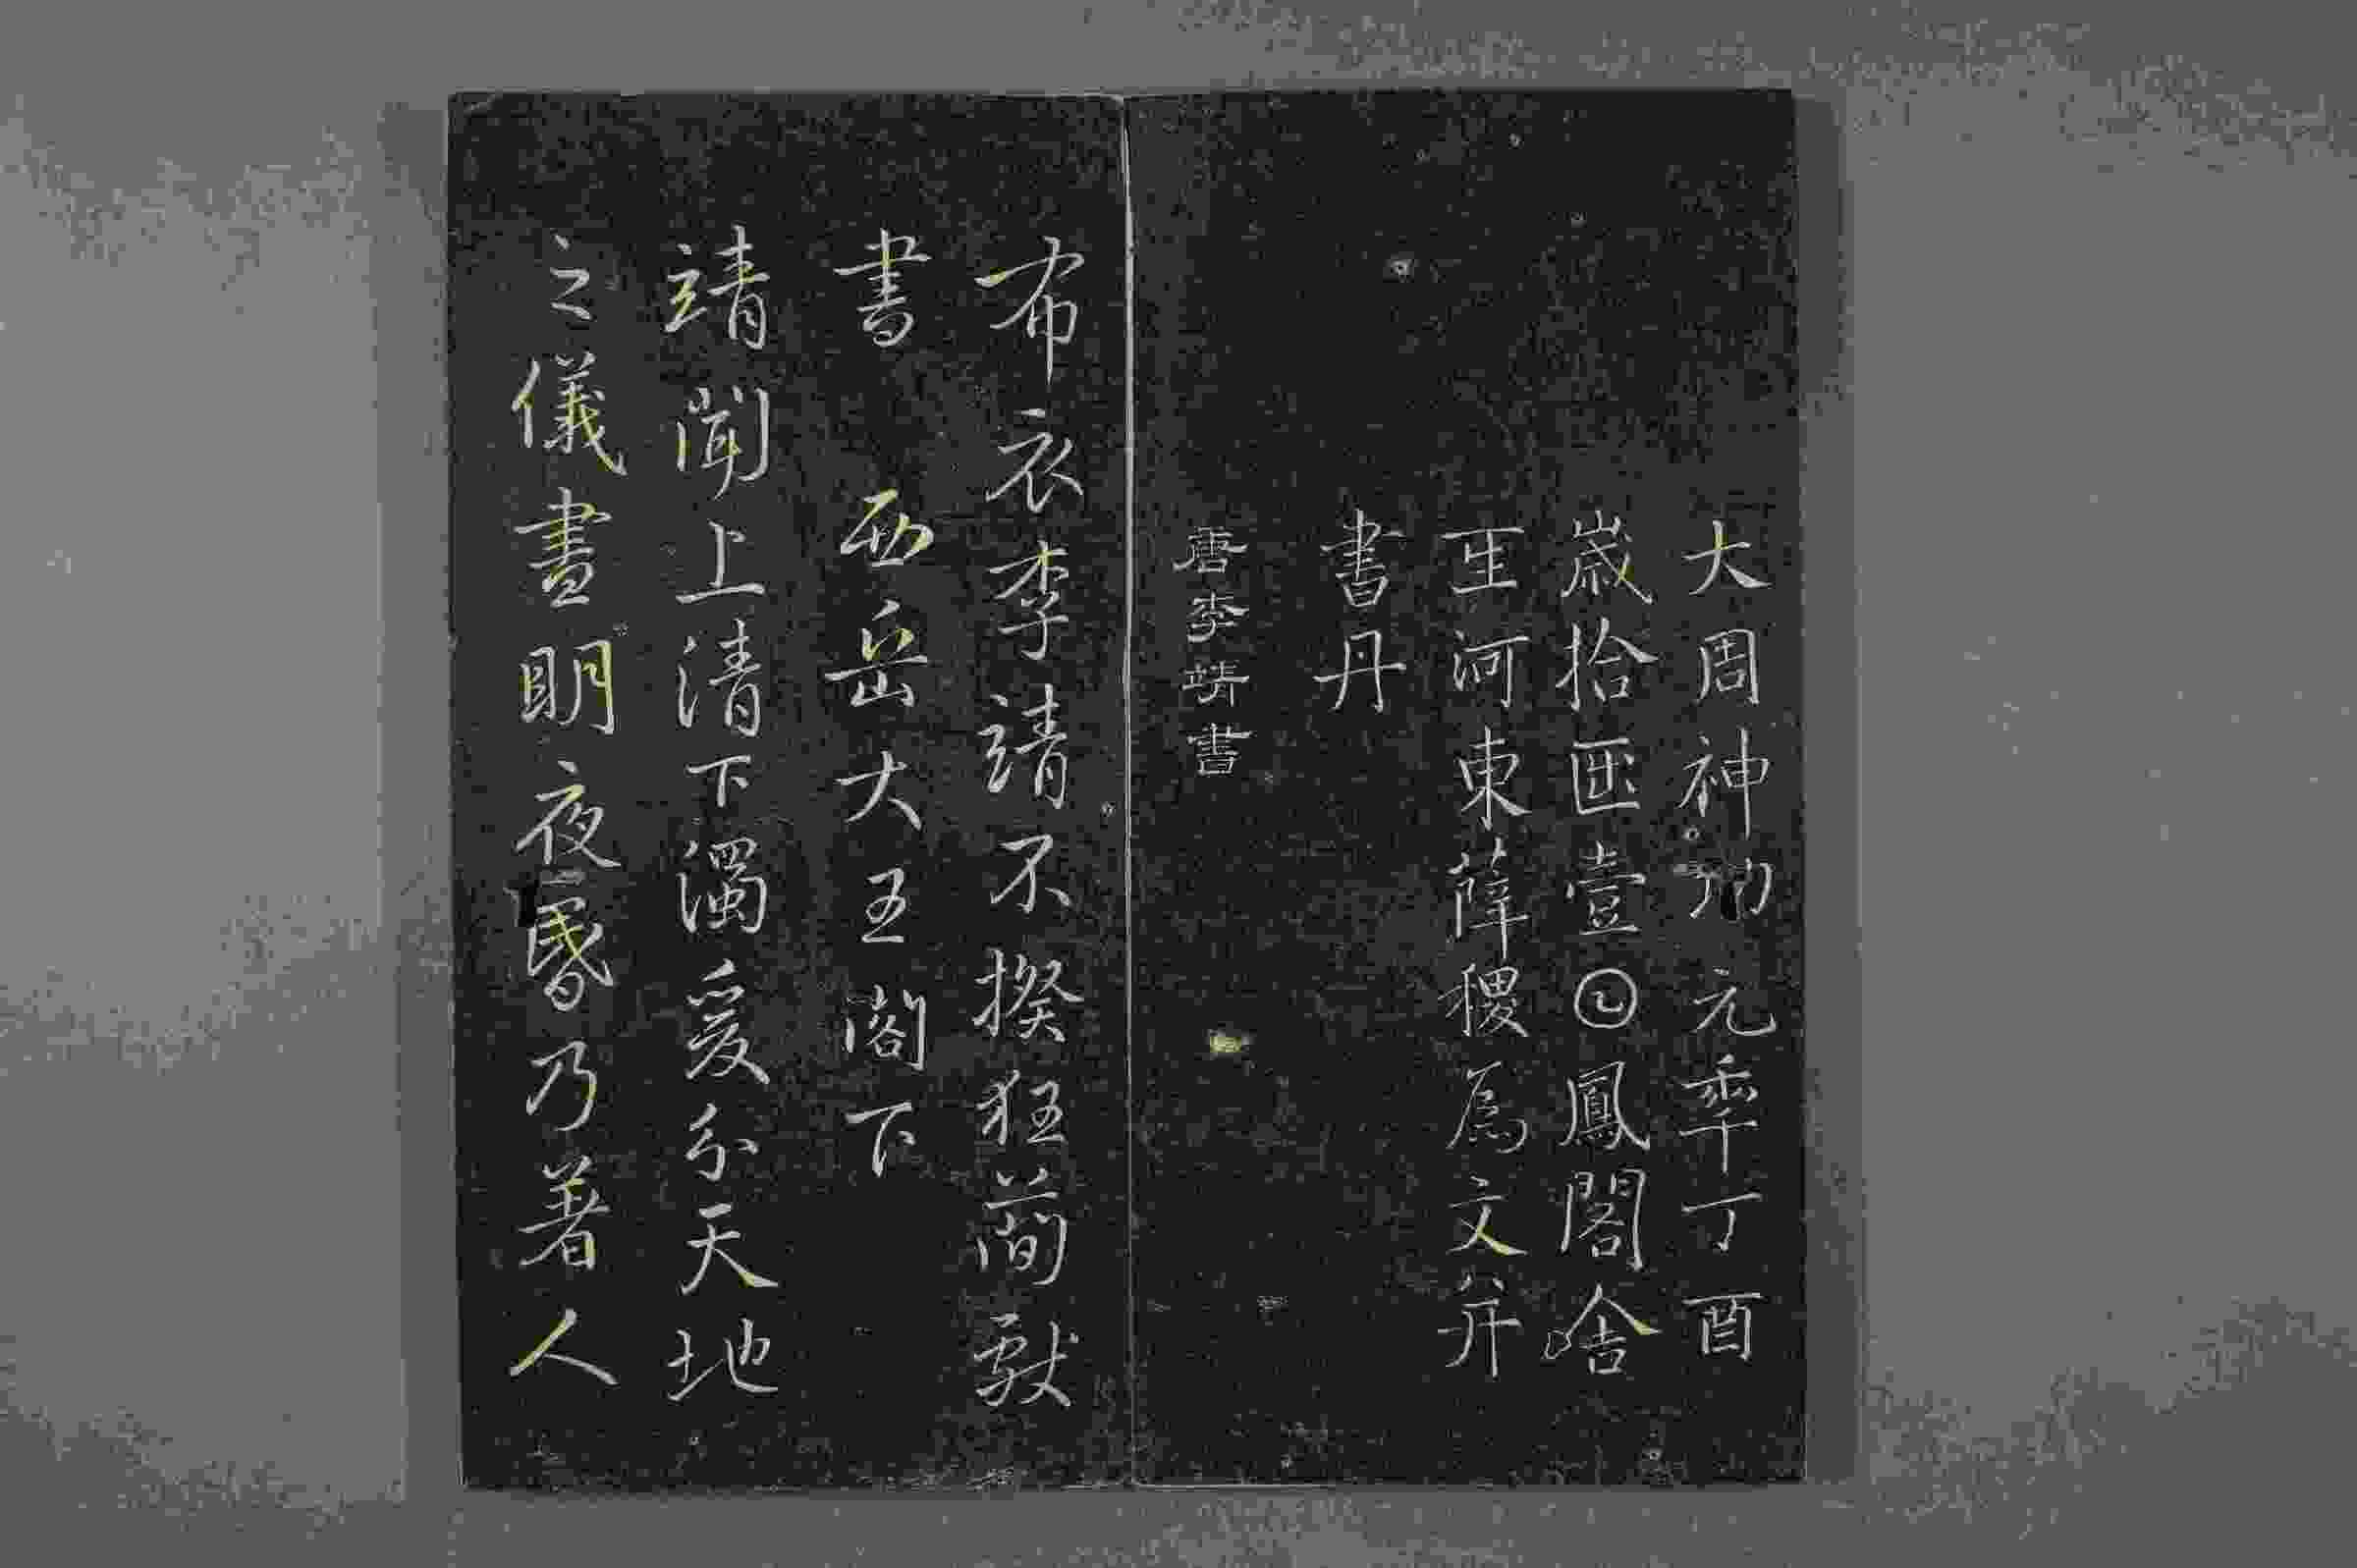 大周神功元秊丁酉
嵗拾𠥱壹𡆠鳳閣舍
𤯔河東薛稷爲文并
書丹
唐李靖書
布衣李靖不揆狂簡獻
書 西岳大王閣下
靖聞上清下濁爰分天地
之儀晝明夜昬乃著人